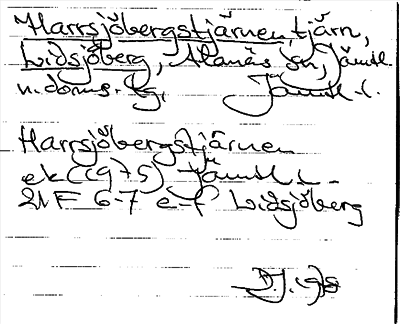 Harrsjöbergstjärnen, tjärn,
Lidsjöberg, Alanäs sn, Jämtl.
Jämtl. l.
Harrsjöbergstjärnen
ek (1975) Jämtl. l.
21F 6-7 e-f Lidsjöberg